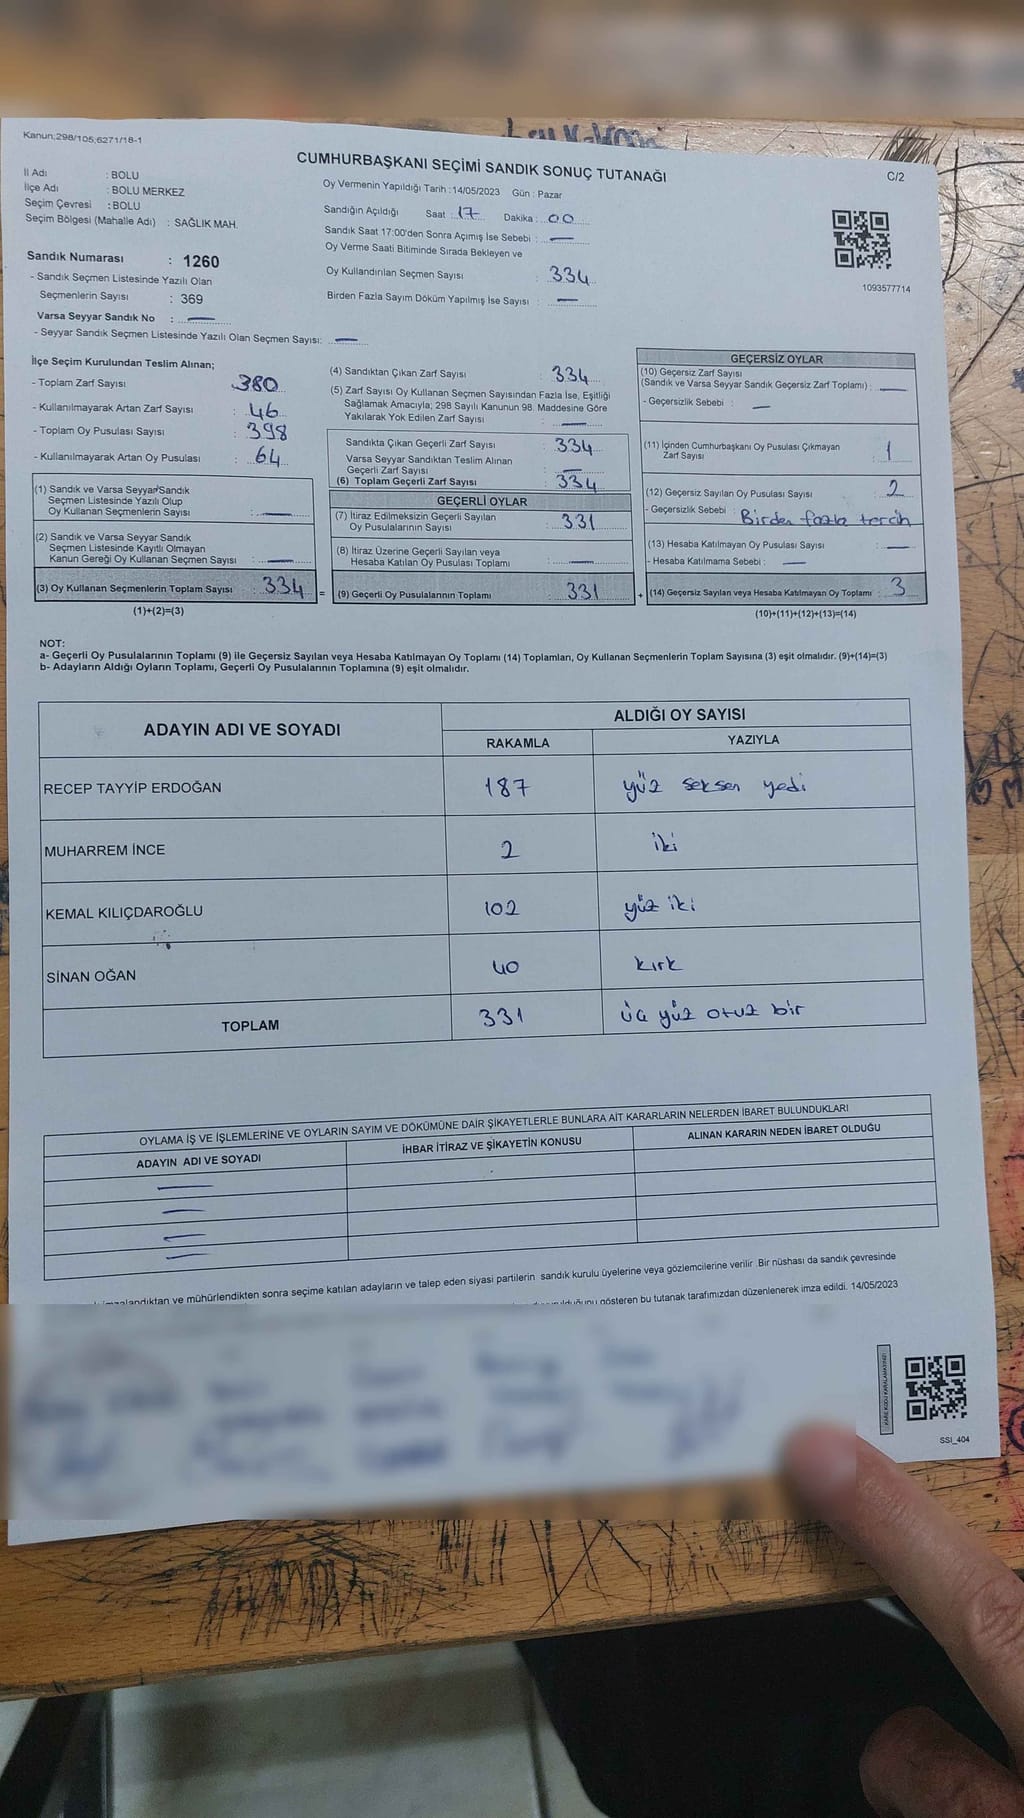 Kanun;298/105;6271/18-1
CUMHURBAŞKANI SEÇİMİ SANDIK SONUÇ TUTANAĞI
C/2
İl Adı : BOLU
İlçe Adı : BOLU MERKEZ
Seçim Çevresi : BOLU
Seçim Bölgesi (Mahalle Adı) : SAĞLIK MAH.
Sandık Numarası : 1260
- Sandık Seçmen Listesinde Yazılı Olan
Seçmenlerin Sayısı : 369
Varsa Seyyar Sandık No :
- Seyyar Sandık Seçmen Listesinde Yazılı Olan Seçmen Sayısı:
Oy Vermenin Yapıldığı Tarih : 14/05/2023 Gün : Pazar
Sandığın Açıldığı Saat : 17 Dakika : 00
Sandık Saat 17:00'den Sonra Açımış İse Sebebi :
Oy Verme Saati Bitiminde Sırada Bekleyen ve
Oy Kullandırılan Seçmen Sayısı : 334
Birden Fazla Sayım Döküm Yapılmış İse Sayısı :
1093577714
İlçe Seçim Kurulundan Teslim Alınan;
- Toplam Zarf Sayısı : 380
- Kullanılmayarak Artan Zarf Sayısı : 46
- Toplam Oy Pusulası Sayısı : 398
- Kullanılmayarak Artan Oy Pusulası : 64
(1) Sandık ve Varsa Seyyar Sandık
Seçmen Listesinde Yazılı Olup
Oy Kullanan Seçmenlerin Sayısı :
(2) Sandık ve Varsa Seyyar Sandık
Seçmen Listesinde Kayıtlı Olmayan
Kanun Gereği Oy Kullanan Seçmen Sayısı :
(3) Oy Kullanan Seçmenlerin Toplam Sayısı : 334 =
(1)+(2)=(3)
(4) Sandıktan Çıkan Zarf Sayısı : 334
(5) Zarf Sayısı Oy Kullanan Seçmen Sayısından Fazla İse, Eşitliği
Sağlamak Amacıyla; 298 Sayılı Kanunun 98. Maddesine Göre
Yakılarak Yok Edilen Zarf Sayısı :
Sandıkta Çıkan Geçerli Zarf Sayısı : 334
Varsa Seyyar Sandıktan Teslim Alınan
Geçerli Zarf Sayısı :
(6) Toplam Geçerli Zarf Sayısı : 334
GEÇERLİ OYLAR
(7) İtiraz Edilmeksizin Geçerli Sayılan
Oy Pusulalarının Sayısı : 331
(8) İtiraz Üzerine Geçerli Sayılan veya
Hesaba Katılan Oy Pusulası Toplamı :
(9) Geçerli Oy Pusulalarının Toplamı : 331 +
GEÇERSİZ OYLAR
(10) Geçersiz Zarf Sayısı
(Sandık ve Varsa Seyyar Sandık Geçersiz Zarf Toplamı) :
- Geçersizlik Sebebi :
(11) İçinden Cumhurbaşkanı Oy Pusulası Çıkmayan
Zarf Sayısı : 1
(12) Geçersiz Sayılan Oy Pusulası Sayısı : 2
- Geçersizlik Sebebi : Birden fazla tercih
(13) Hesaba Katılmayan Oy Pusulası Sayısı :
- Hesaba Katılmama Sebebi :
(14) Geçersiz Sayılan veya Hesaba Katılmayan Oy Toplamı : 3
(10)+(11)+(12)+(13)=(14)
NOT:
a- Geçerli Oy Pusulalarının Toplamı (9) ile Geçersiz Sayılan veya Hesaba Katılmayan Oy Toplamı (14) Toplamları, Oy Kullanan Seçmenlerin Toplam Sayısına (3) eşit olmalıdır. (9)+(14)=(3)
b- Adayların Aldığı Oyların Toplamı, Geçerli Oy Pusulalarının Toplamına (9) eşit olmalıdır.
ADAYIN ADI VE SOYADI ALDIĞI OY SAYISI
RAKAMLA YAZIYLA
RECEP TAYYİP ERDOĞAN 187 yüz seksen yedi
MUHARREM İNCE 2 iki
KEMAL KILIÇDAROĞLU 102 yüz iki
SİNAN OĞAN 40 kırk
TOPLAM 331 üç yüz otuz bir
OYLAMA İŞ VE İŞLEMLERİNE VE OYLARIN SAYIM VE DÖKÜMÜNE DAİR ŞİKAYETLERLE BUNLARA AİT KARARLARIN NELERDEN İBARET BULUNDUKLARI
ADAYIN ADI VE SOYADI İHBAR İTİRAZ VE ŞİKAYETİN KONUSU ALINAN KARARIN NEDEN İBARET OLDUĞU
imzalandıktan ve mühürlendikten sonra seçime katılan adayların ve talep eden siyasi partilerin sandık kurulu üyelerine veya gözlemcilerine verilir. Bir nüshası da sandık çevresinde
gösteren bu tutanak tarafımızdan düzenlenerek imza edildi. 14/05/2023
KARE KODU KARALAMAYINIZ!
SSI_404